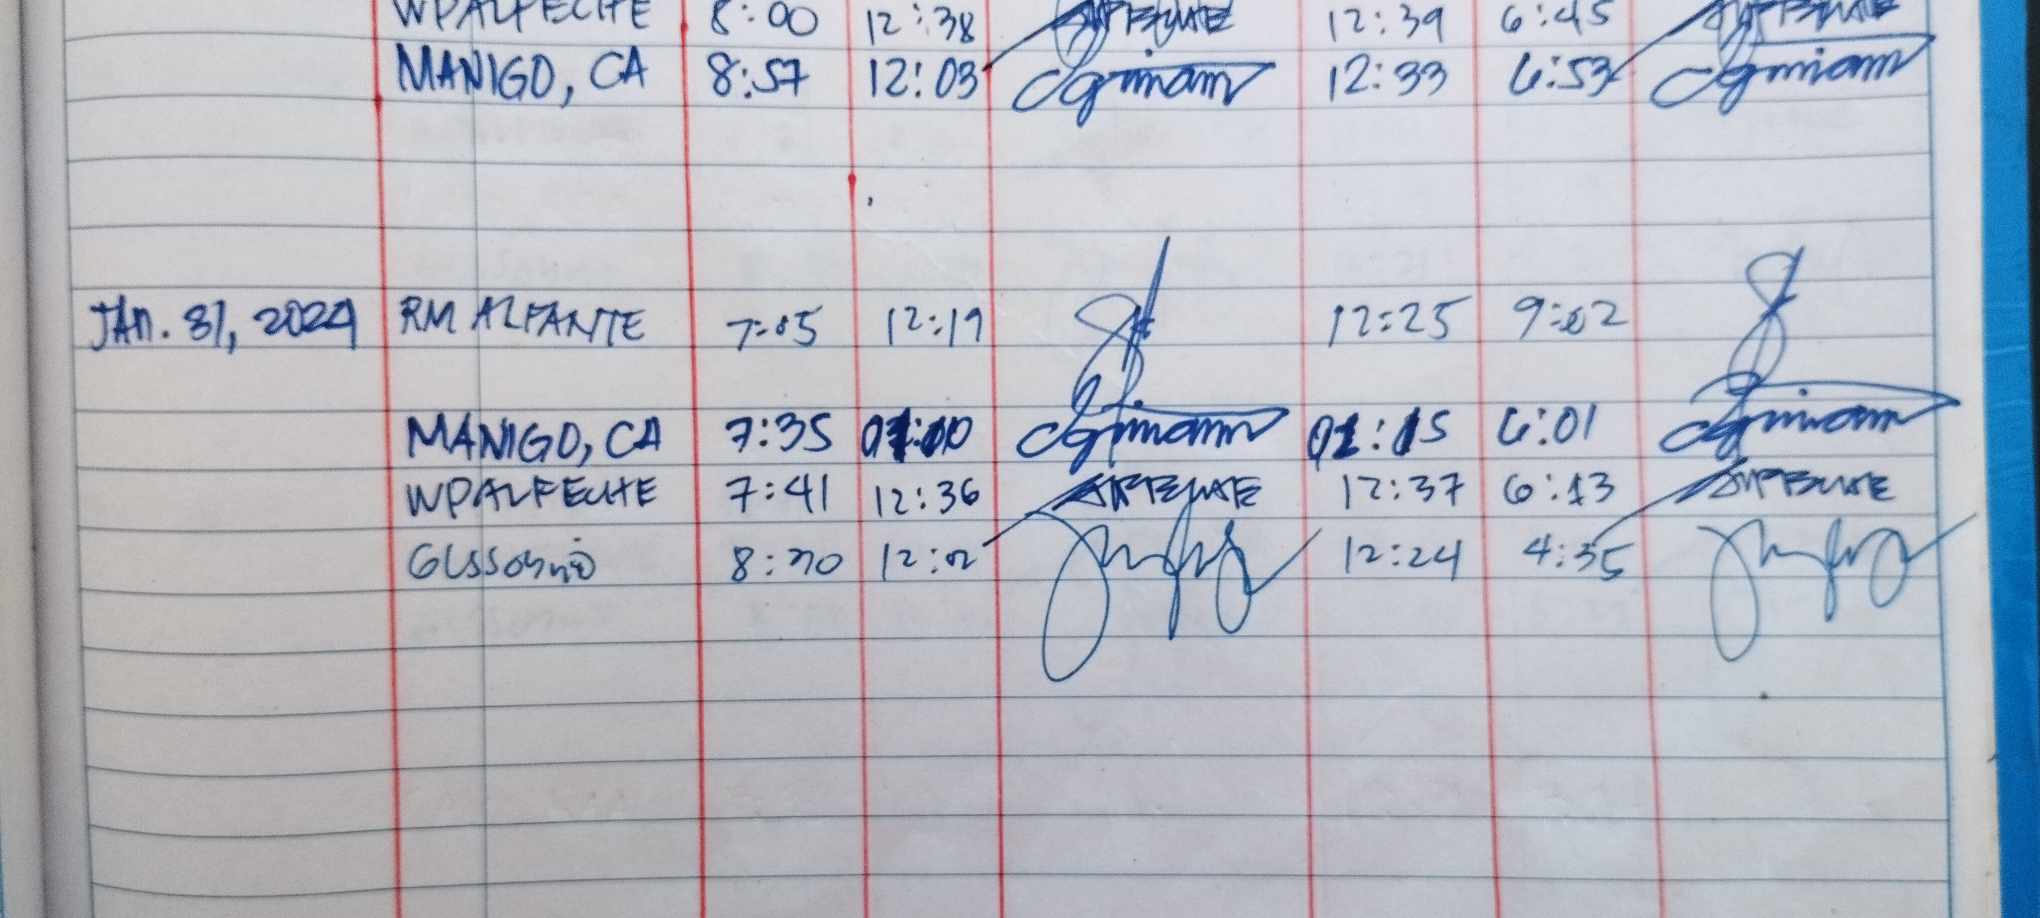 WPALFECHE 8:00 12:38 12:39 6:45
MANIGO, CA 8:57 12:03 12:33 6:53
JAN. 31, 2024 RM ALFANTE 7:05 12:19 12:25 9:02
MANIGO, CA 7:35 01:00 01:15 6:01
WPALFECHE 7:41 12:36 12:37 6:13
8:20 12:02 12:24 4:35